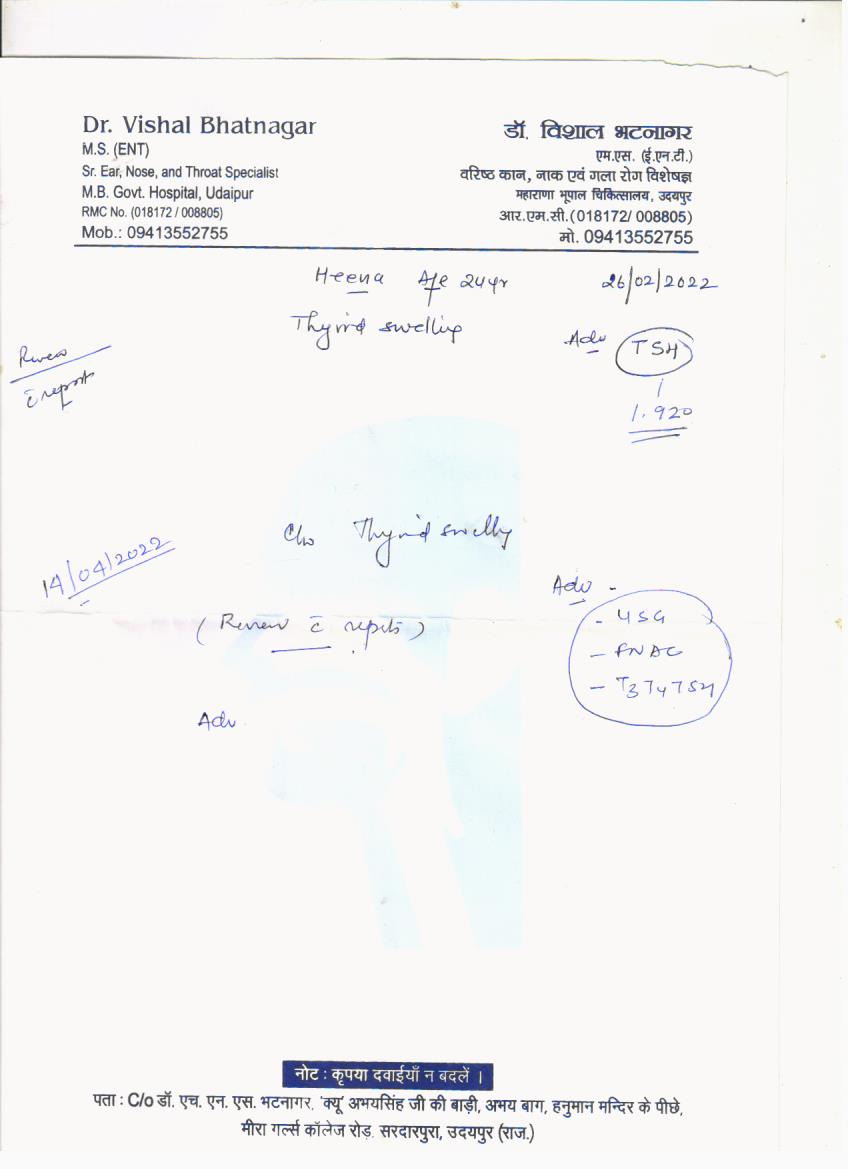 Dr. Vishal Bhatnagar
M.S. (ENT)
Sr. Ear, Nose, and Throat Specialist
M.B. Govt. Hospital, Udaipur
RMC No. (018172 / 008805)
Mob.: 09413552755
डॉ. विशाल भटनागर
एम.एस. (ई.एन.टी.)
वरिष्ठ कान, नाक एवं गला रोग विशेषज्ञ
महाराणा भूपाल चिकित्सालय, उदयपुर
आर.एम.सी.(018172/ 008805)
मो. 09413552755
Heena Age 24yr 26/02/2022
Thyroid swelling
Adv TSH
1.920
Review
c̄ report
14/04/2022
C/o Thyroid swelling
(Review c̄ reports)
Adv -
- USG
- FNAC
- T3 T4 TSH
Adv
नोट : कृपया दवाईयाँ न बदलें ।
पता : C/o डॉ. एच. एन. एस. भटनागर, 'क्यू' अभयसिंह जी की बाड़ी, अभय बाग, हनुमान मन्दिर के पीछे,
मीरा गर्ल्स कॉलेज रोड़, सरदारपुरा, उदयपुर (राज.)